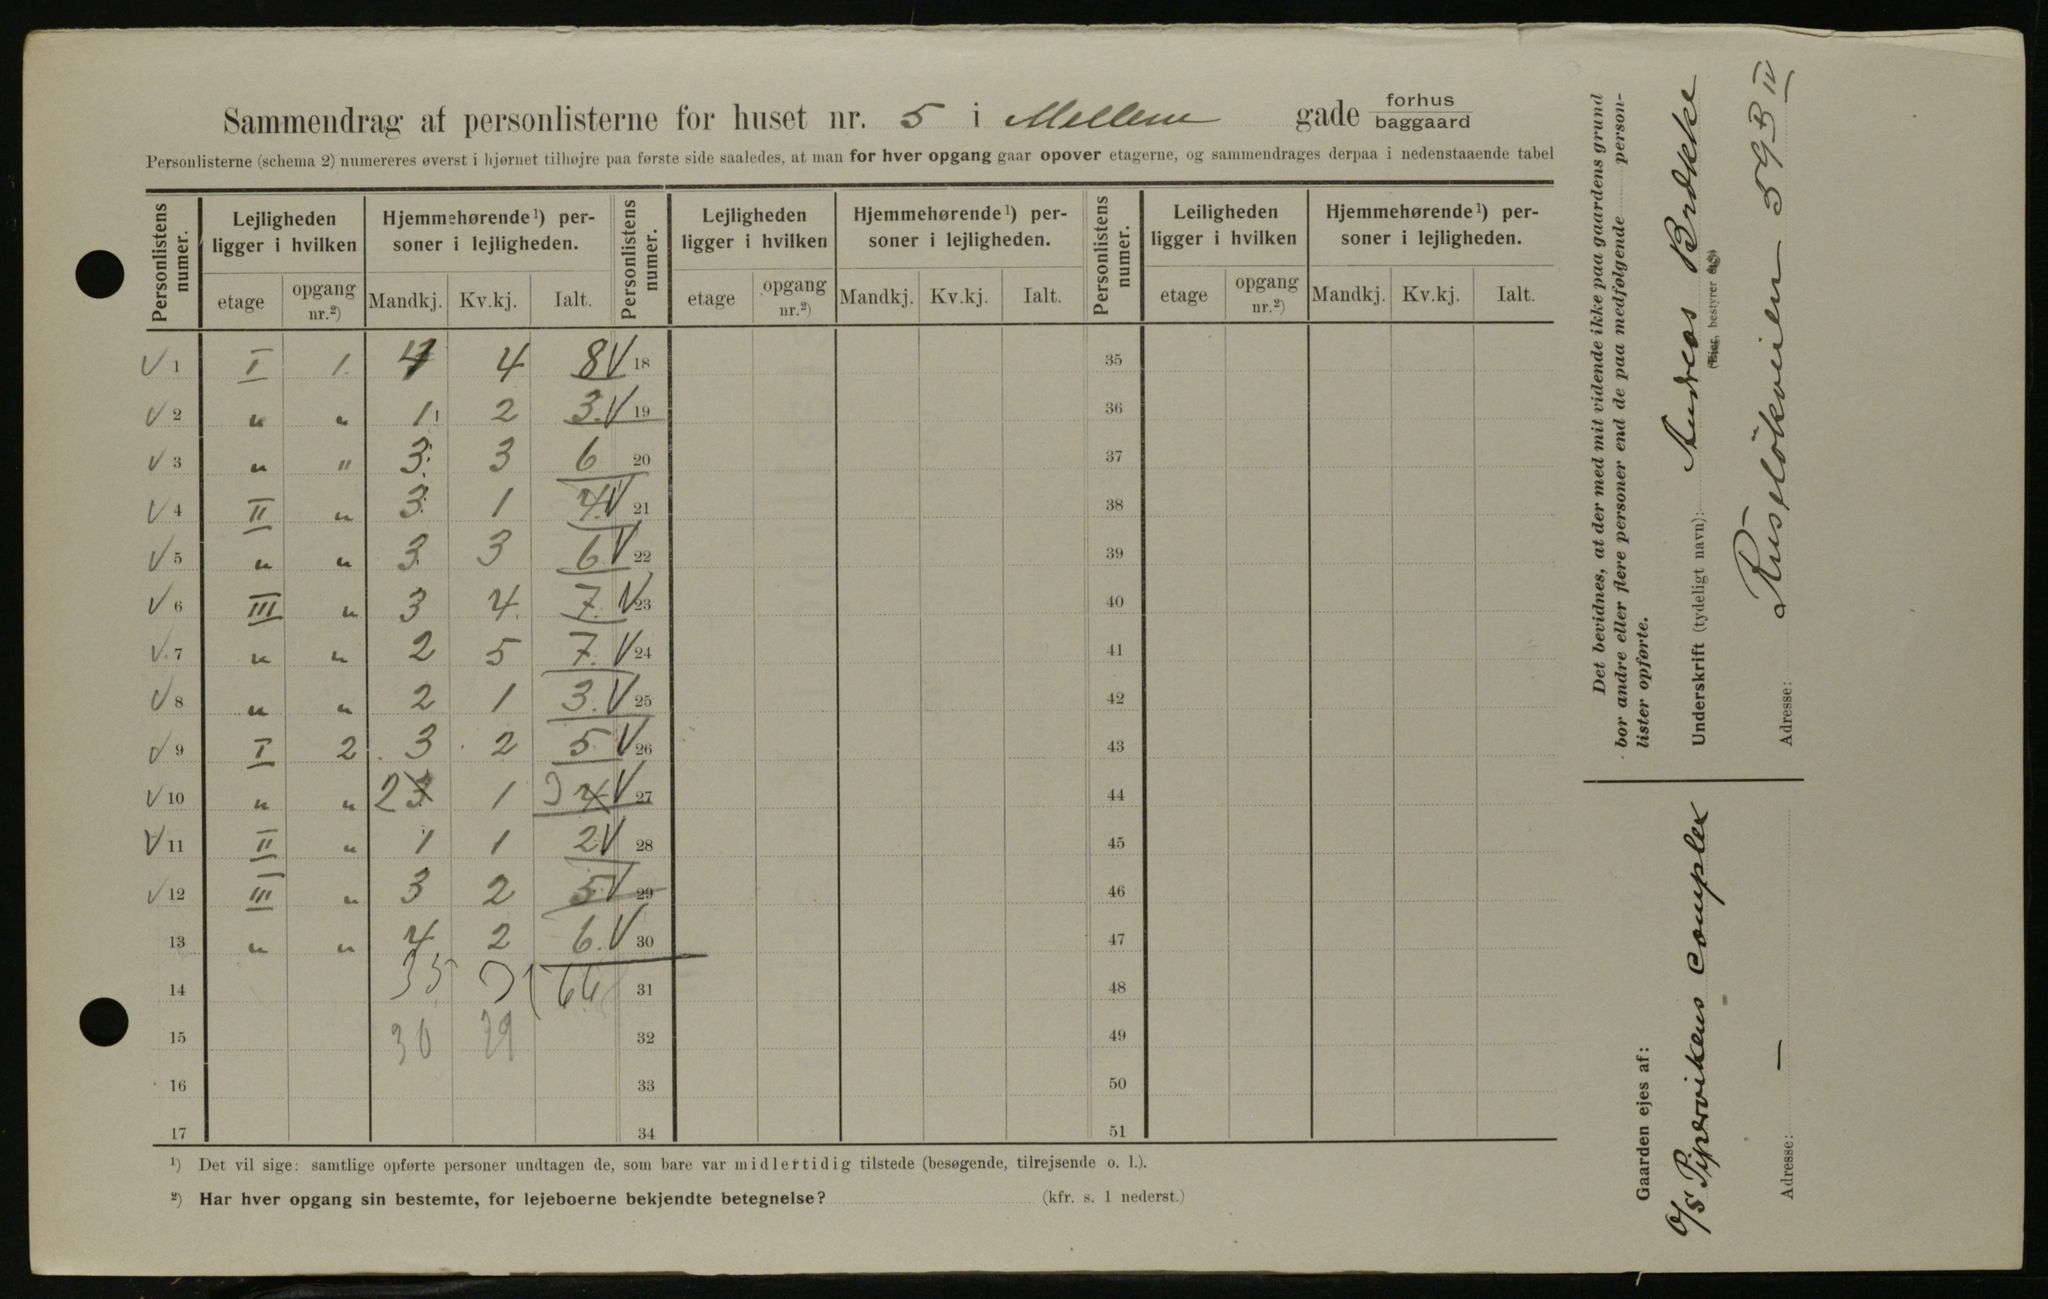 Sammendrag af personlisterne for huset nr. 5 i Mellem gade forhus baggaard
Personlisterne (schema 2) numereres øverst i hjørnet tilhøjre paa første side saaledes, at man for hver opgang gaar opover etagerne, og sammendrages derpaa i nedenstaaende tabel
Personlistens numer. Lejligheden ligger i hvilken Hjemmehørende¹) personer i lejligheden. Personlistens numer. Lejligheden ligger i hvilken Hjemmehørende¹) personer i lejligheden. Personlistens numer. Leiligheden ligger i hvilken Hjemmehørende¹) personer i lejligheden.
etage opgang nr.²) Mandkj. Kv.kj. Ialt. etage opgang nr.²) Mandkj. Kv.kj. Ialt. etage opgang nr.²) Mandkj. Kv.kj. Ialt.
V 1 I 1. 4 4 8 V 18 35
V 2 " " 1 2 3. V 19 36
V 3 " " 3. 3 6 20 37
V 4 II " 3 1 4. V 21 38
V 5 " " 3 3 6 V 22 39
V 6 III " 3 4. 7. V 23 40
V 7 " " 2 5 7. V 24 41
V 8 " " 2 1 3. V 25 42
V 9 I 2 3 2 5 V 26 43
V 10 " " 2 3 1 3 4 V 27 44
V 11 II " 1 1 2 V 28 45
V 12 III " 3 2 5 V 29 46
13 " " 4 2 6. V 30 47
14 35 31 66 31 48
15 30 29 32 49
16 33 50
17 34 51
¹) Det vil sige: samtlige opførte personer undtagen de, som bare var midlertidig tilstede (besøgende, tilrejsende o. l.).
²) Har hver opgang sin bestemte, for lejeboerne bekjendte betegnelse? (kfr. s. 1 nederst.)
Det bevidnes, at der med mit vidende ikke paa gaardens grund
bor andre eller flere personer end de paa medfølgende person-
lister opførte.
Underskrift (tydeligt navn): Andreas Brække
(Eier, bestyrer
Adresse: Ruseløkveien 59 B IV
Gaarden ejes af:
A/S Pipervikens Complex
Adresse: —